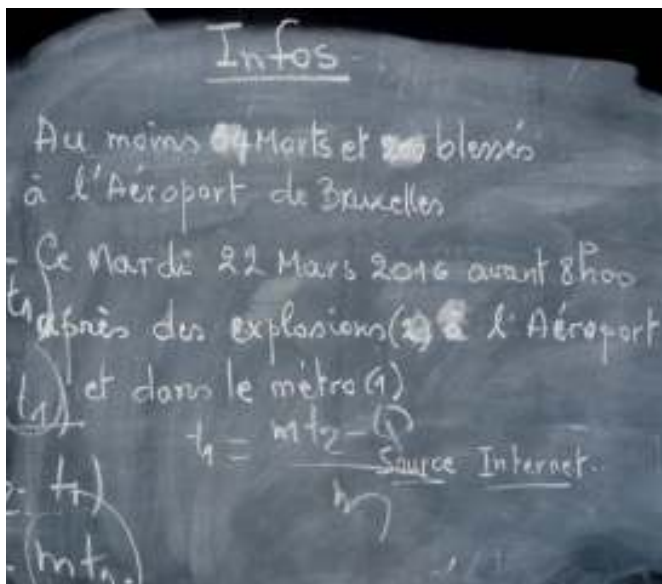 Infos
Au moins 64 Morts et 200 blessés
à l'Aéroport de Bruxelles
Ce Mardi 22 Mars 2016 avant 8h00
t₁)
après des explosions (2) à l'Aéroport
t₁)
et dans le métro (1)
t₁ = mt₂ - Q
m
Source Internet.
t₁)
(mt₂